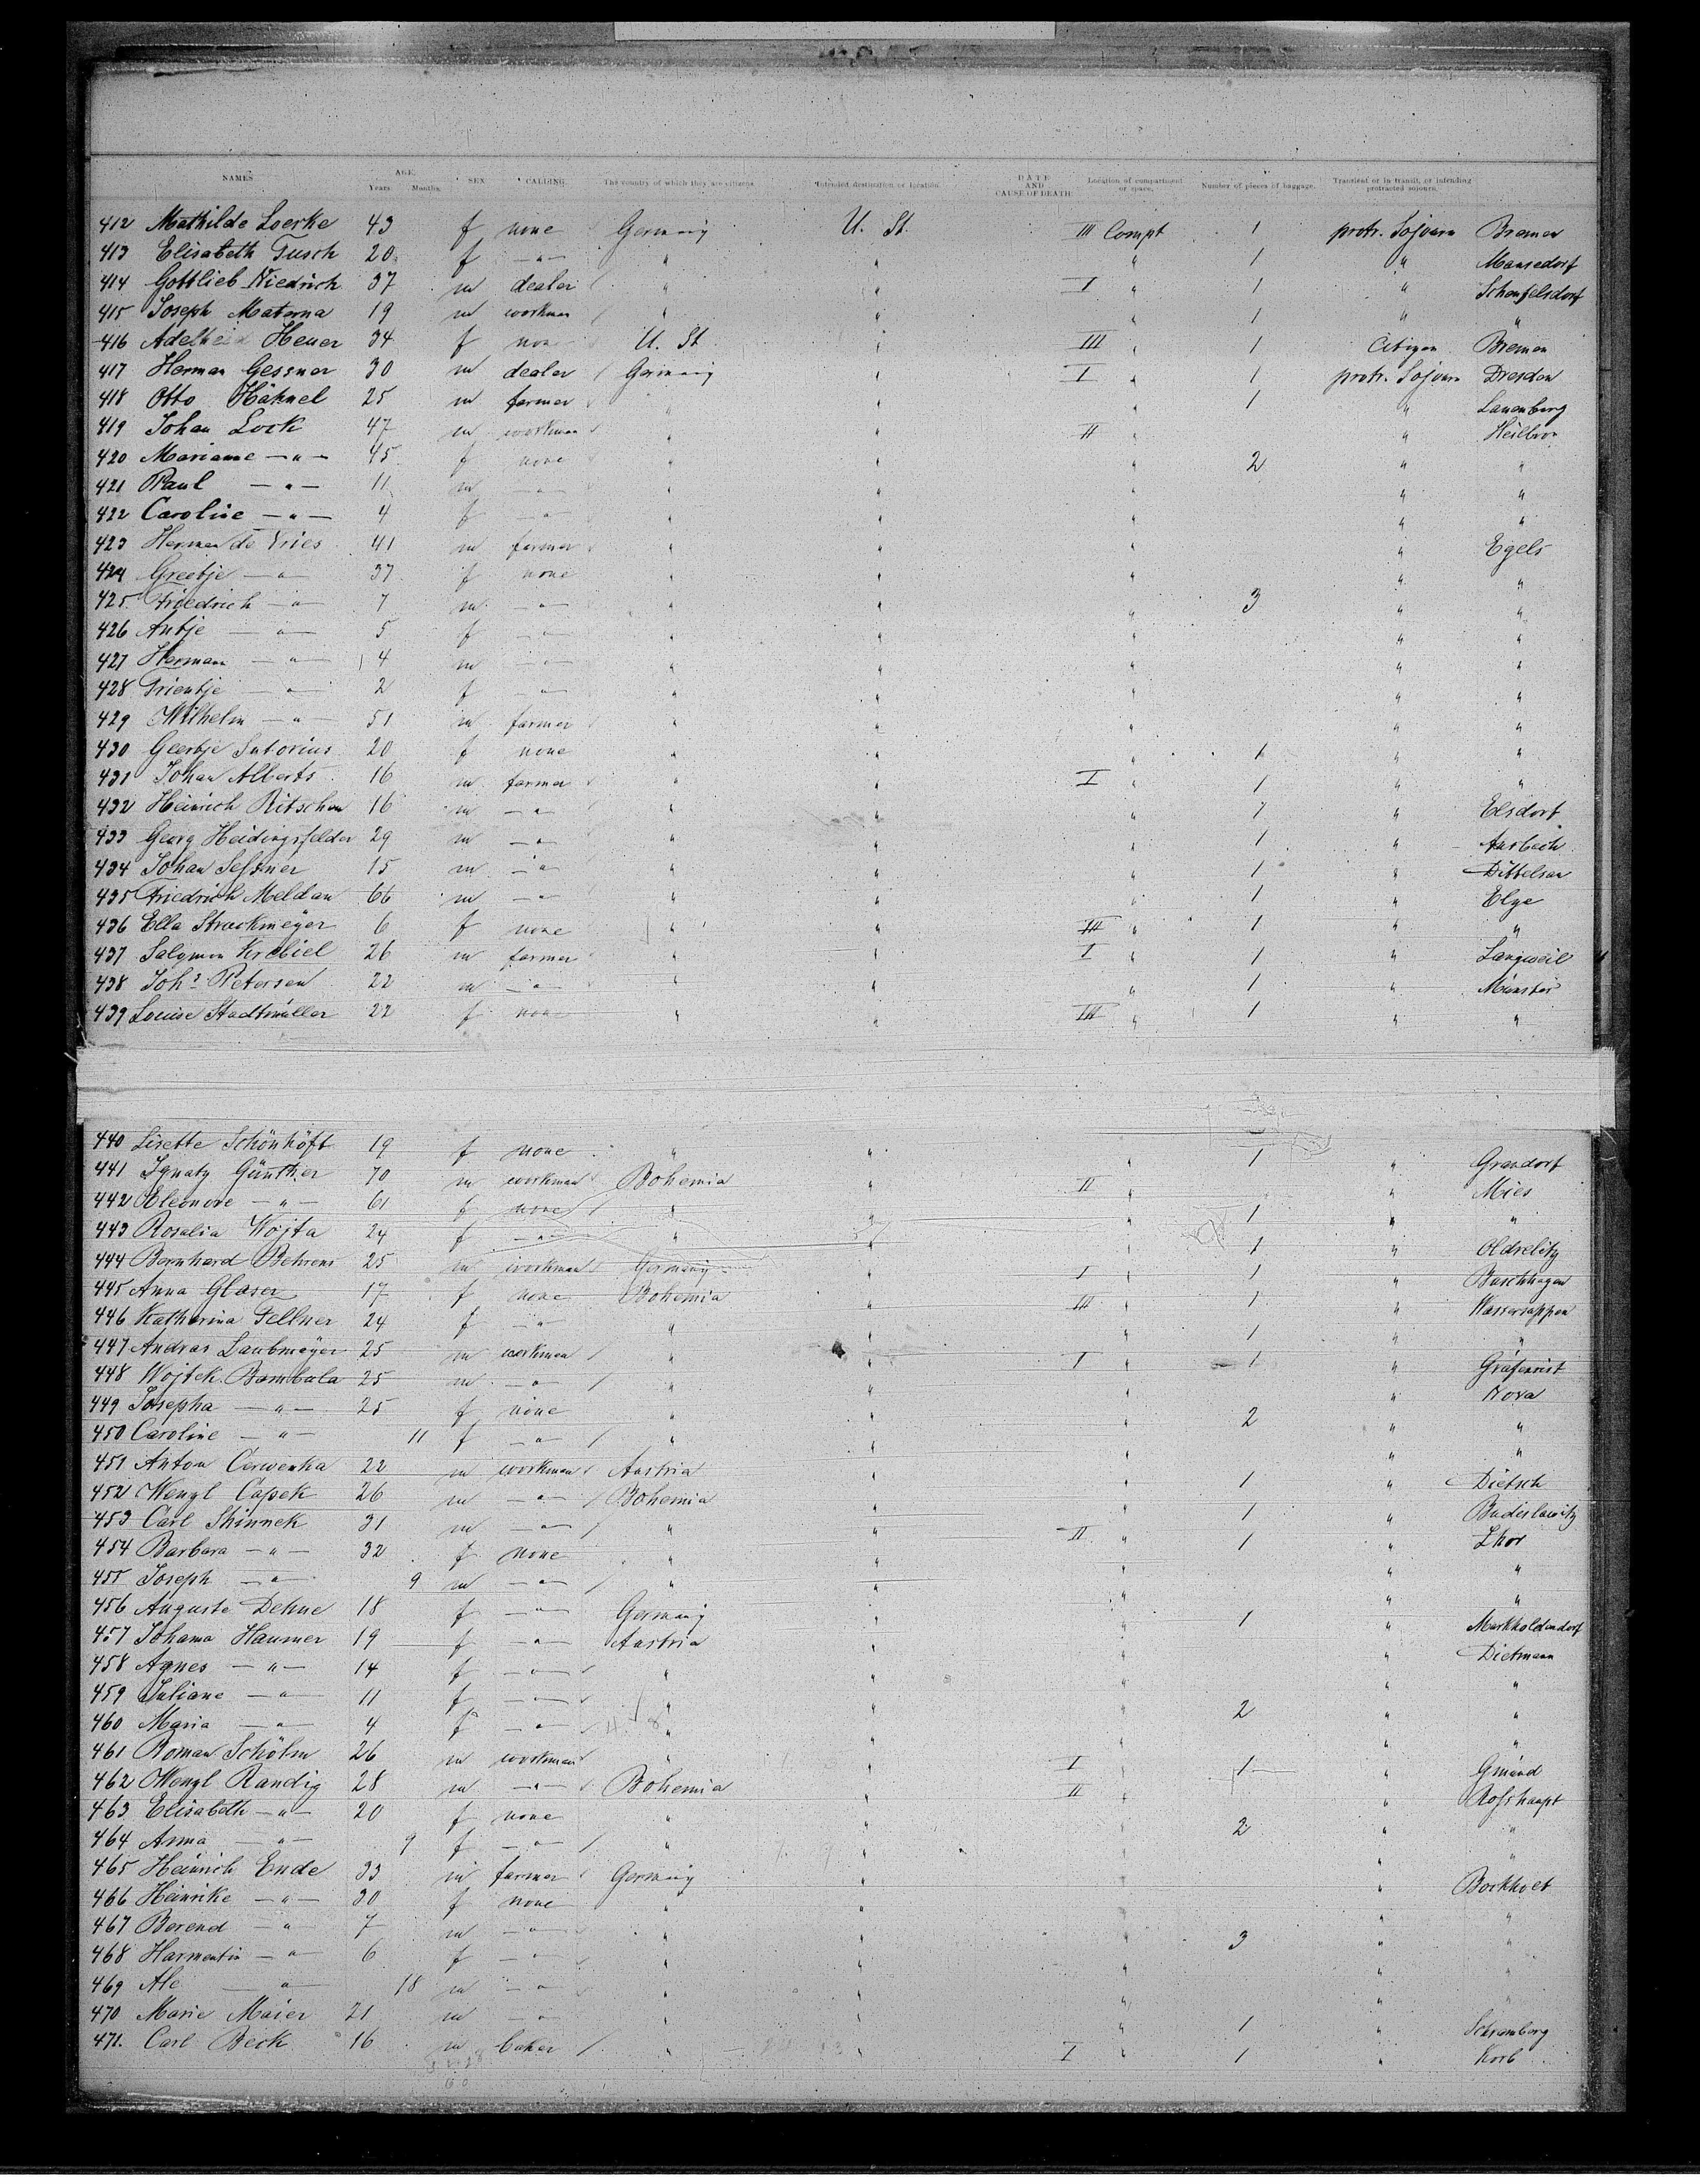 NAMES. AGE. Years. Months. SEX. CALLING. The country of which they are citizens. Intended destination or location. DATE AND CAUSE OF DEATH. Location of compartment or space. Number of pieces of baggage. Transient or in transit, or intending protracted sojourn.
412 Mathilde Loerke 43 f none Germany U. St. III Compt 1 protr. Sojourn Bremen
413 Elisabeth Tusch 20 f —"— " " " 1 " Mansedorf
414 Gottlieb Niedrich 37 m dealer " " I " 1 " Schonfelsdorf
415 Joseph Materna 19 m workman " " " 1 " "
416 Adelheid Heuer 34 f none U. St. " III " 1 Citizen Bremen
417 Herman Gessner 30 m dealer Germany " I " 1 protr. Sojourn Dresden
418 Otto Hähnel 25 m farmer " " " 1 " Lauenburg
419 Johan Lock 47 m workman " " II " " Heilbron
420 Mariane —"— 45 f none " " " 2 " "
421 Paul —"— 11 m —"— " " " " "
422 Caroline —"— 4 f —"— " " " " "
423 Herman de Vries 41 m farmer " " " " Egels
424 Greetje —"— 37 f none " " " " "
425 Friedrich —"— 7 m —"— " " " 3 " "
426 Antje —"— 5 f —"— " " " " "
427 Herman —"— 4 m —"— " " " " "
428 Trientje —"— 2 f —"— " " " " "
429 Wilhelm —"— 51 m farmer " " " " "
430 Geertje Sutorius 20 f none " " " 1 " "
431 Johan Alberts 16 m farmer " " I " 1 " "
432 Heinrich Ritschen 16 m —"— " " " 1 " Elsdorf
433 Georg Heidingsfelder 29 m —"— " " " 1 " Ansbach
434 Johan Seßner 15 m —"— " " " 1 " Dittelsau
435 Friedrich Meldau 66 m —"— " " " 1 " Elze
436 Ella Strackmeyer 6 f none " " III " 1 " "
437 Salymon Krebiel 26 m farmer " " I " 1 " Langweil
438 Johs Petersen 22 m —"— " " " 1 " Münster
439 Louise Stadtmüller 22 f none " " III " 1 " "
440 Lisette Schönhöft 19 f none " " " 1 " Grasdorf
441 Ignatz Günther 70 m workman Bohemia " II " " Mies
442 Eleonore —"— 61 f none " " " 1 " "
443 Rosalia Wojta 24 f —"— " " " 1 " Oldrelitz
444 Bernhard Behrens 25 m workman Germany " I " 1 " Buschhagen
445 Anna Glaser 17 f none Bohemia " III " 1 " Wassersuppen
446 Katharina Fellner 24 f —"— " " " 1 " "
447 Andras Laubmeyer 25 m workman " " I " 1 " Gräfenriet
448 Wojtek Bambula 25 m —"— " " " " Nova
449 Josepha —"— 25 f none " " " 2 " "
450 Caroline —"— 11 f —"— " " " " "
451 Anton Cerwenka 22 m workman Austria " " 1 " Dietsch
452 Wenzl Capek 26 m —"— Bohemia " " 1 " Budislawitz
453 Carl Shimnek 31 m —"— " " II " 1 " Lhor
454 Barbara —"— 32 f none " " " " "
455 Joseph —"— 9 m —"— " " " " "
456 Auguste Dehne 18 f —"— Germany " " 1 " Markholdendorf
457 Johana Haumer 19 f —"— Austria " " " Dietmann
458 Agnes —"— 14 f —"— " " " " "
459 Juliane —"— 11 f —"— " " " 2 " "
460 Maria —"— 4 f —"— " " " " "
461 Roman Schölm 26 m workman " " I " 1 " Gmünd
462 Wenzl Randig 28 m —"— Bohemia " II " " Roßhaupt
463 Elisabeth —"— 20 f none " " " 2 " "
464 Anna —"— 9 f —"— " " " " "
465 Heinrich Ende 33 m farmer Germany " " " Borkholt
466 Heinrike —"— 30 f none " " " " "
467 Berend —"— 7 m —"— " " " 3 " "
468 Harmentin —"— 6 f —"— " " " " "
469 Ale —"— 18 m —"— " " " " "
470 Marie Maier 21 m —"— " " " 1 " Schramberg
471. Carl Beck 16 m baker " " I " 1 " Korb